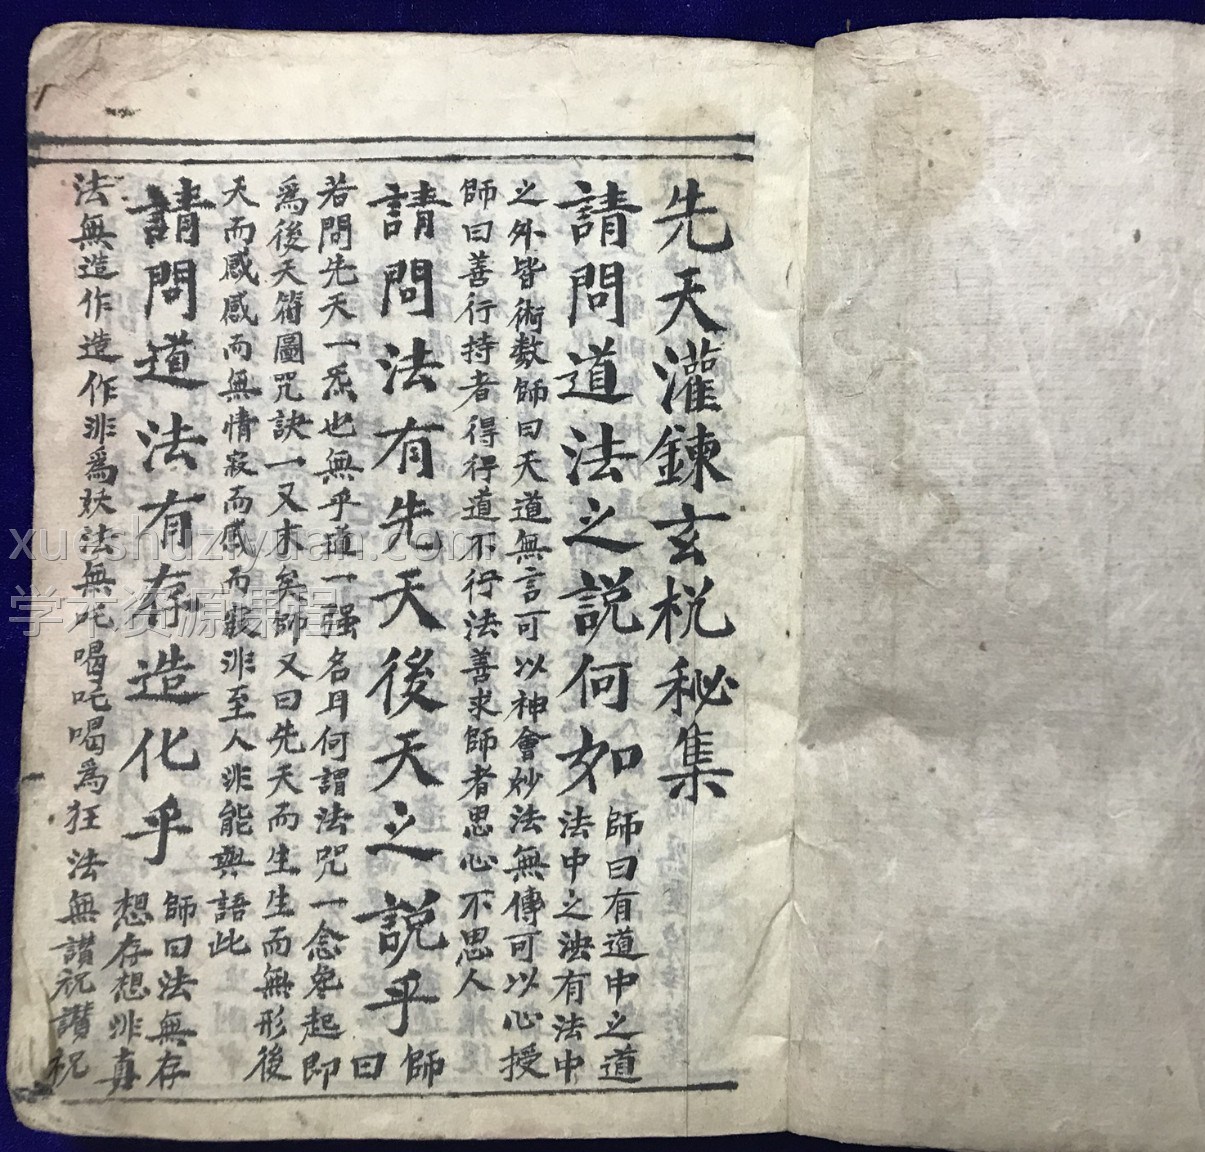 先天灌鍊玄梲秘集
請問道法之説何如
師曰有道中之道
法中之法有法中
之外皆術数師曰天道無言可以神會妙法無傳可以心授
師曰善行持者得得道不行法善求師者思心不思人
請問法有先天後天之説乎
師
曰
若問先天一炁也無乎道一强名耳何謂法咒一念㐱起即
爲後天符圖咒訣一又末矣師又曰先天而生生而無形後
天而感感而無情寂而感而寂非至人非能與語此
請問道法有存造化乎
師曰法無存
想存想非真
法無造作造作非爲妖法無吒喝吒喝爲狂法無讃祝讃祝
xueshuziyuan.com
学术资源课程